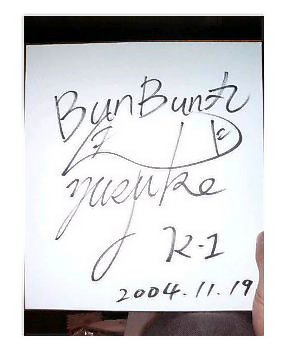 BunBun丸
yusuke
K-1
2004.11.19